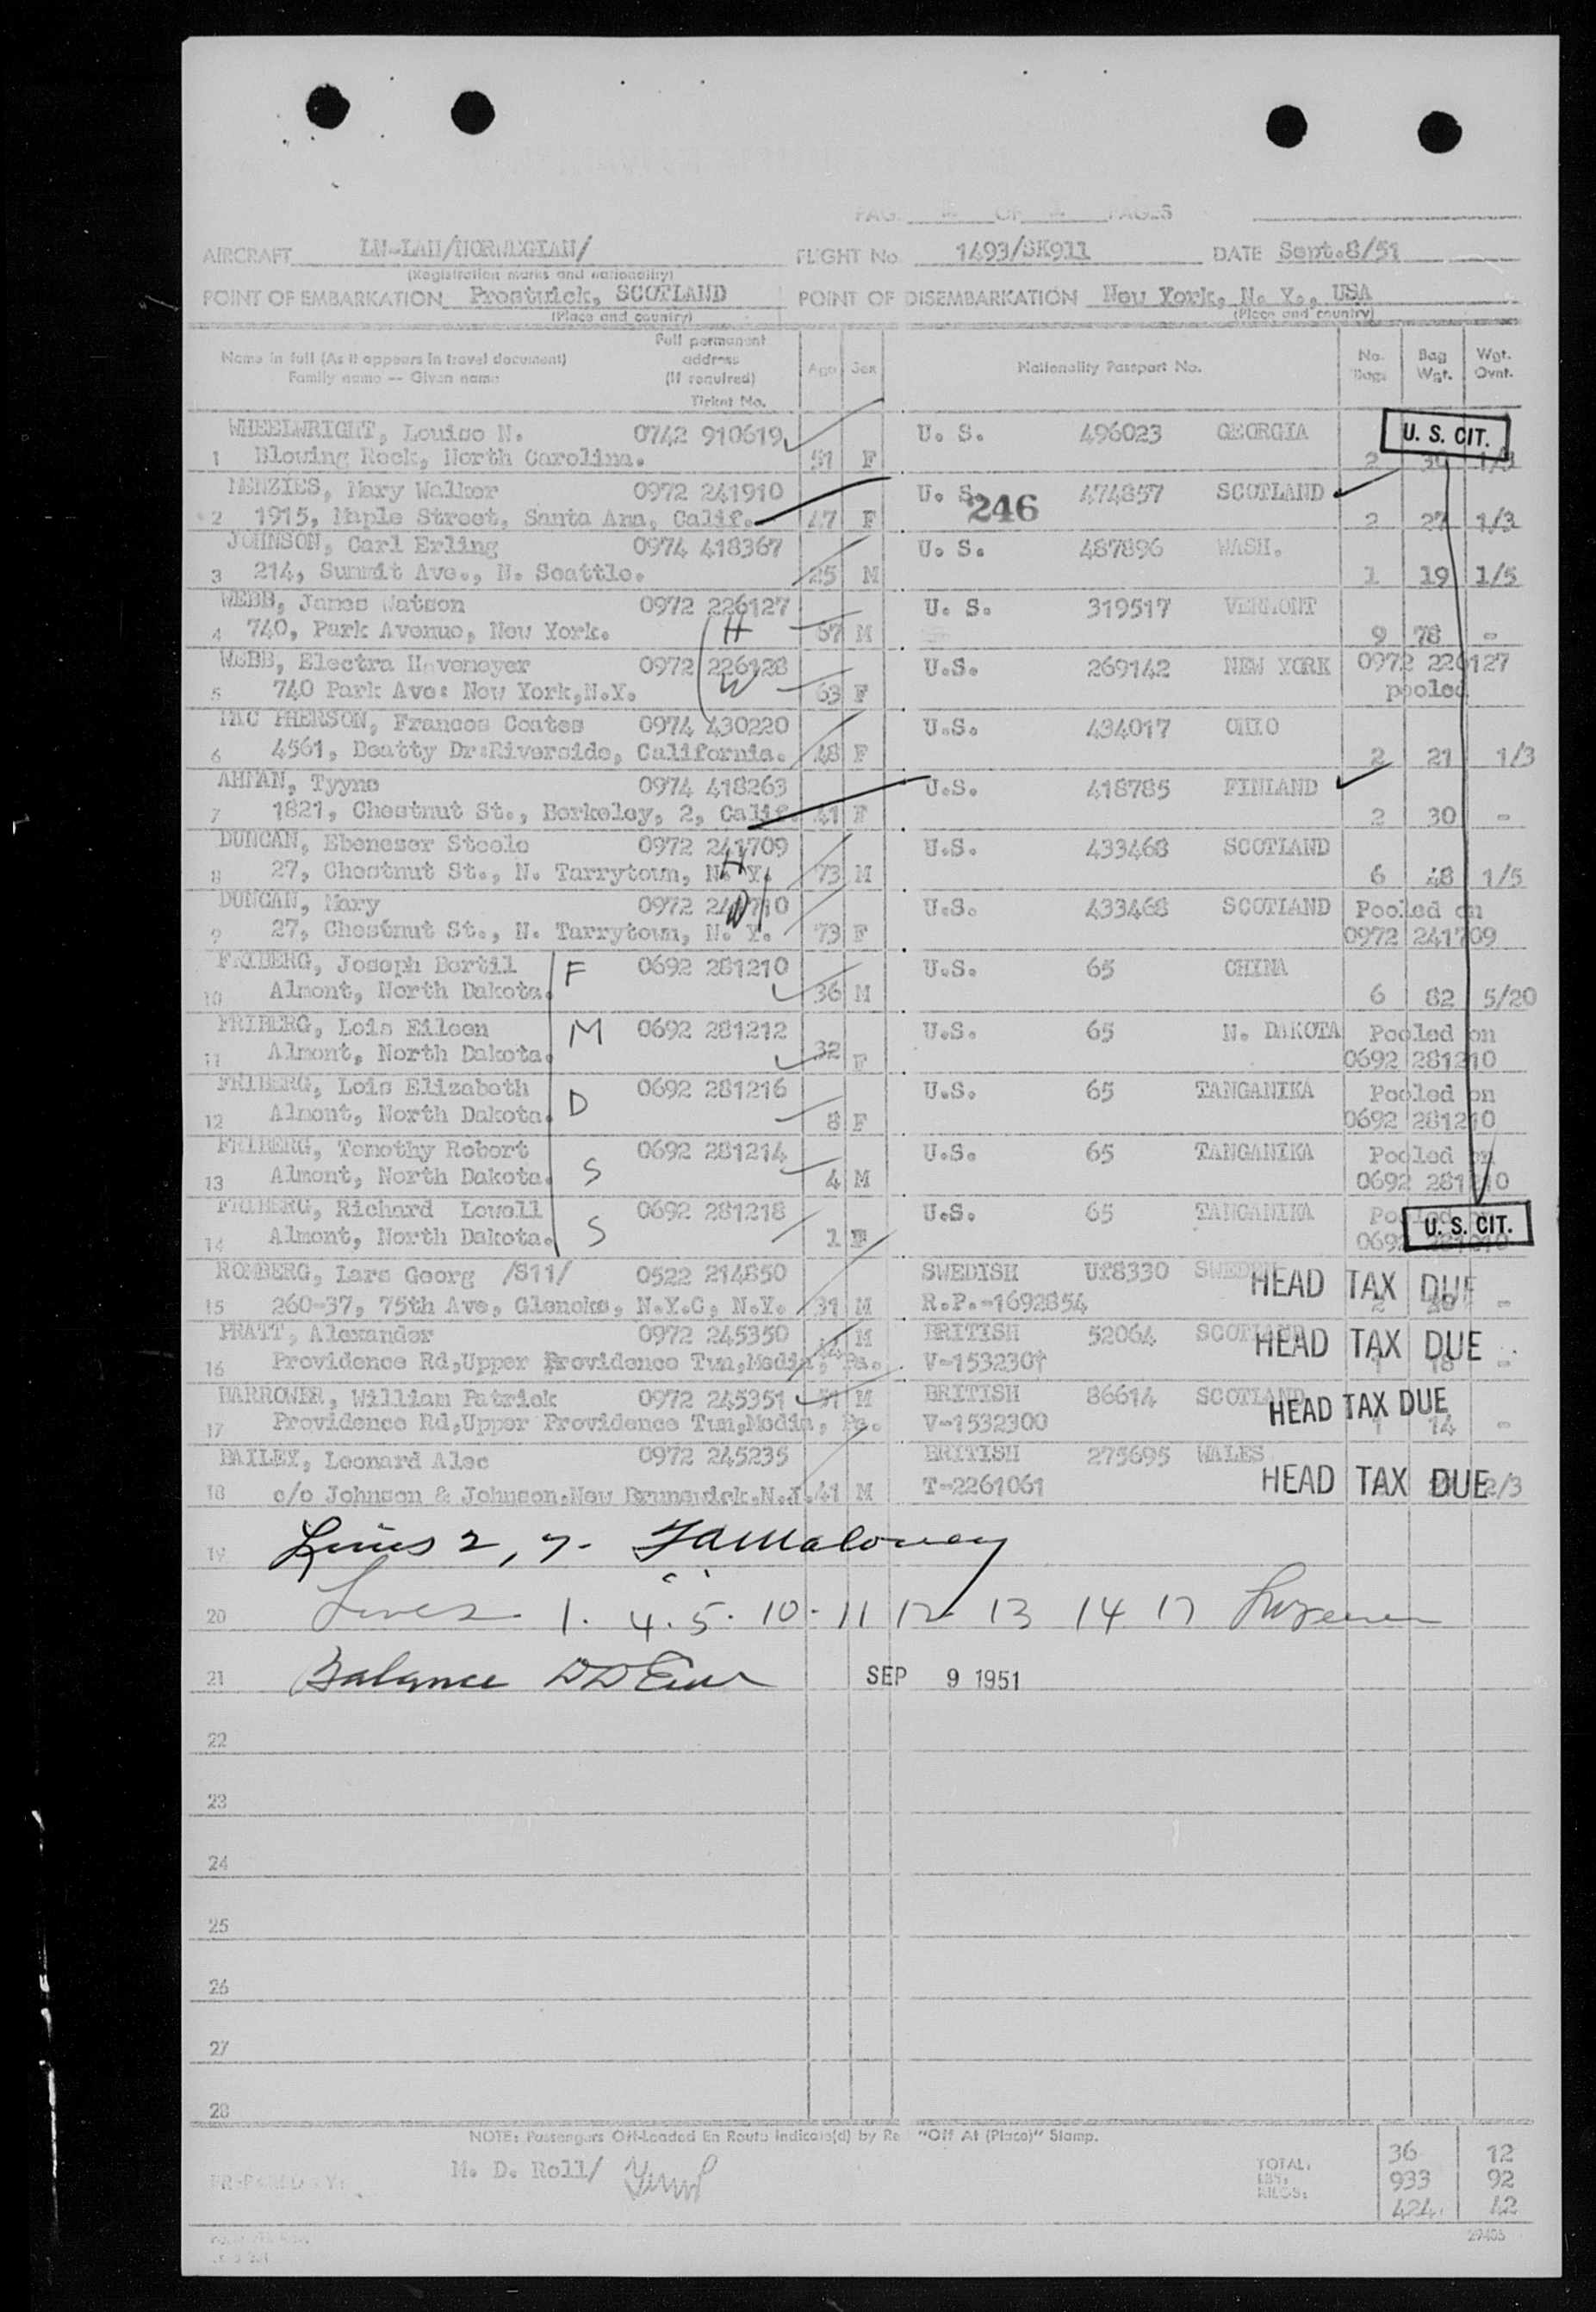 PAGE OF PAGES
AIRCRAFT LN-LAH/NORWEGIAN/ FLIGHT No 1493/SK911 DATE Sept.8/51
(Registration marks and nationality)
POINT OF EMBARKATION Prestwick, SCOTLAND POINT OF DISEMBARKATION New York, N. Y., USA
(Place and country) (Place and country)
Name in full (As it appears in travel document) Family name -- Given name Full permanent address (If required) Ticket No. Age Sex Nationality Passport No. No. Bags Bag Wgt. Wgt. Ovnt.
WHEELWRIGHT, Louise N. 0742 910619 U. S. 496023 GEORGIA U. S. CIT.
1 Blowing Rock, North Carolina. 51 F 2 30 1/3
MENZIES, Mary Walker 0972 241910 U. S. 474857 SCOTLAND
246
2 1915, Maple Street, Santa Ana, Calif. 47 F 2 27 1/3
JOHNSON, Carl Erling 0974 418367 U. S. 487896 WASH.
3 214, Summit Ave., N. Seattle. 25 M 1 19 1/5
WEBB, James Watson 0972 226127 U. S. 319517 VERMONT
4 740, Park Avenue, New York. H 67 M 9 78 -
WEBB, Electra Havemeyer 0972 226128 U.S. 269142 NEW YORK 0972 226127
5 740 Park Ave: New York,N.Y. W 63 F pooled
MAC PHERSON, Frances Coates 0974 430220 U.S. 434017 OHIO
6 4561, Beatty Dr:Riverside, California. 48 F 2 21 1/3
AHMAN, Tyyne 0974 418263 U.S. 418785 FINLAND
7 1821, Chestnut St., Berkeley, 2, Calif. 41 F 2 30 -
DUNCAN, Ebenezer Steele 0972 241709 U.S. 433468 SCOTLAND
8 27, Chestnut St., N. Tarrytown, N. Y. H 73 M 6 48 1/5
DUNCAN, Mary 0972 241710 U.S. 433468 SCOTLAND Pooled on
9 27, Chestnut St., N. Tarrytown, N. Y. W 73 F 0972 241709
FRIBERG, Joseph Bertil F 0692 281210 U.S. 65 CHINA
10 Almont, North Dakota. 36 M 6 82 5/20
FRIBERG, Lois Eileen M 0692 281212 U.S. 65 N. DAKOTA Pooled on
11 Almont, North Dakota. 32 F 0692 281210
FRIBERG, Lois Elizabeth D 0692 281216 U.S. 65 TANGANIKA Pooled on
12 Almont, North Dakota. 8 F 0692 281210
FRIBERG, Tomothy Robert 0692 281214 U.S. 65 TANGANIKA Pooled on
13 Almont, North Dakota. S 4 M 0692 281210
FRIBERG, Richard Lowell 0692 281218 U.S. 65 TANGANIKA Pooled on
14 Almont, North Dakota. S 1 F 0692 281210 U. S. CIT.
ROMBERG, Lars Georg /S11/ 0522 214850 SWEDISH U18330 SWEDEN HEAD TAX DUE
15 260-37, 75th Ave, Glenoks, N.Y.C, N.Y. 31 M R.P.-1692854 2 -
PRATT, Alexander 0972 245350 M BRITISH 52064 SCOTLAND HEAD TAX DUE
16 Providence Rd,Upper Providence Twn,Media, Pa. V-1532301 1 18 -
BARROWER, William Patrick 0972 245351 51 M BRITISH 86614 SCOTLAND HEAD TAX DUE
17 Providence Rd,Upper Providence Twn,Media, Pa. V-1532300 1 14 -
BAILEY, Leonard Alec 0972 245235 BRITISH 275695 WALES
18 c/o Johnson & Johnson.New Brunswick.N.J. 41 M T-2261061 HEAD TAX DUE 2/3
19 Lines 2, 7. Maloney
20 Lines 1. 4. 5. 10. 11 12 13 14 17
21 Balance SEP 9 1951
22
23
24
25
26
27
28
NOTE: Passengers Off-Loaded En Route Indicate(d) by Re "Off At (Place)" Stamp.
PREPARED BY: M. D. Roll/
TOTAL: 36 12
LBS: 933 92
KILOS: 424. 42
29405